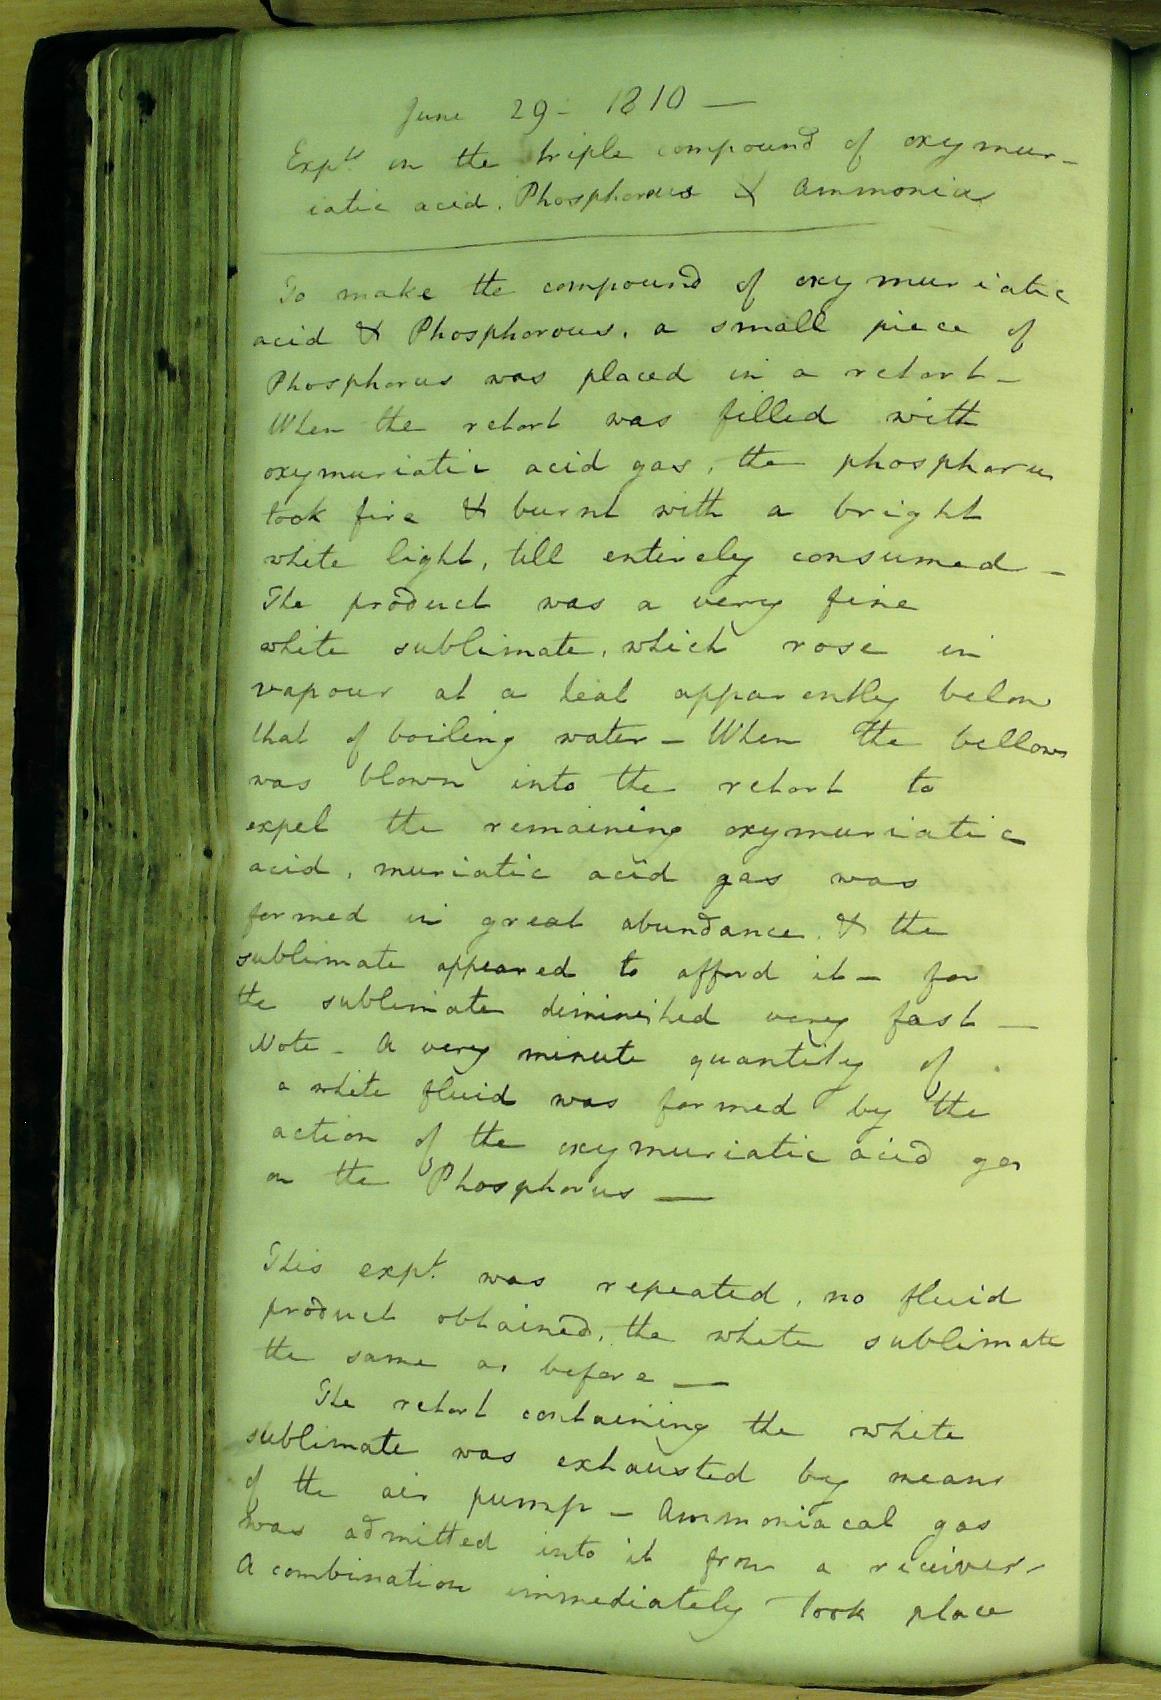 June 29 - 1810 —
Expts. on the triple compound of oxymur-
iatic acid, Phosphorus & Ammonia
To make the compound of oxymuriatic
acid & Phosphorous, a small piece of
Phosphorus was placed in a retort -
When the retort was filled with
oxymuriatic acid gas, the phosphorus
took fire & burnt with a bright
white light, till entirely consumed -
The product was a very fine
white sublimate, which rose in
vapour at a heat apparently below
that of boiling water - When the bellows
was blown into the retort to
expel the remaining oxymuriatic
acid, muriatic acid gas was
formed in great abundance, & the
sublimate appeared to afford it - for
the sublimate diminished very fast —
Note - A very minute quantity of
a white fluid was formed by the
action of the oxymuriatic acid gas
on the Phosphorus —
This expt. was repeated, no fluid
product obtained, the white sublimate
the same as before —
The retort containing the white
sublimate was exhausted by means
of the air pump - Ammoniacal gas
was admitted into it from a receiver -
A combination immediately took place